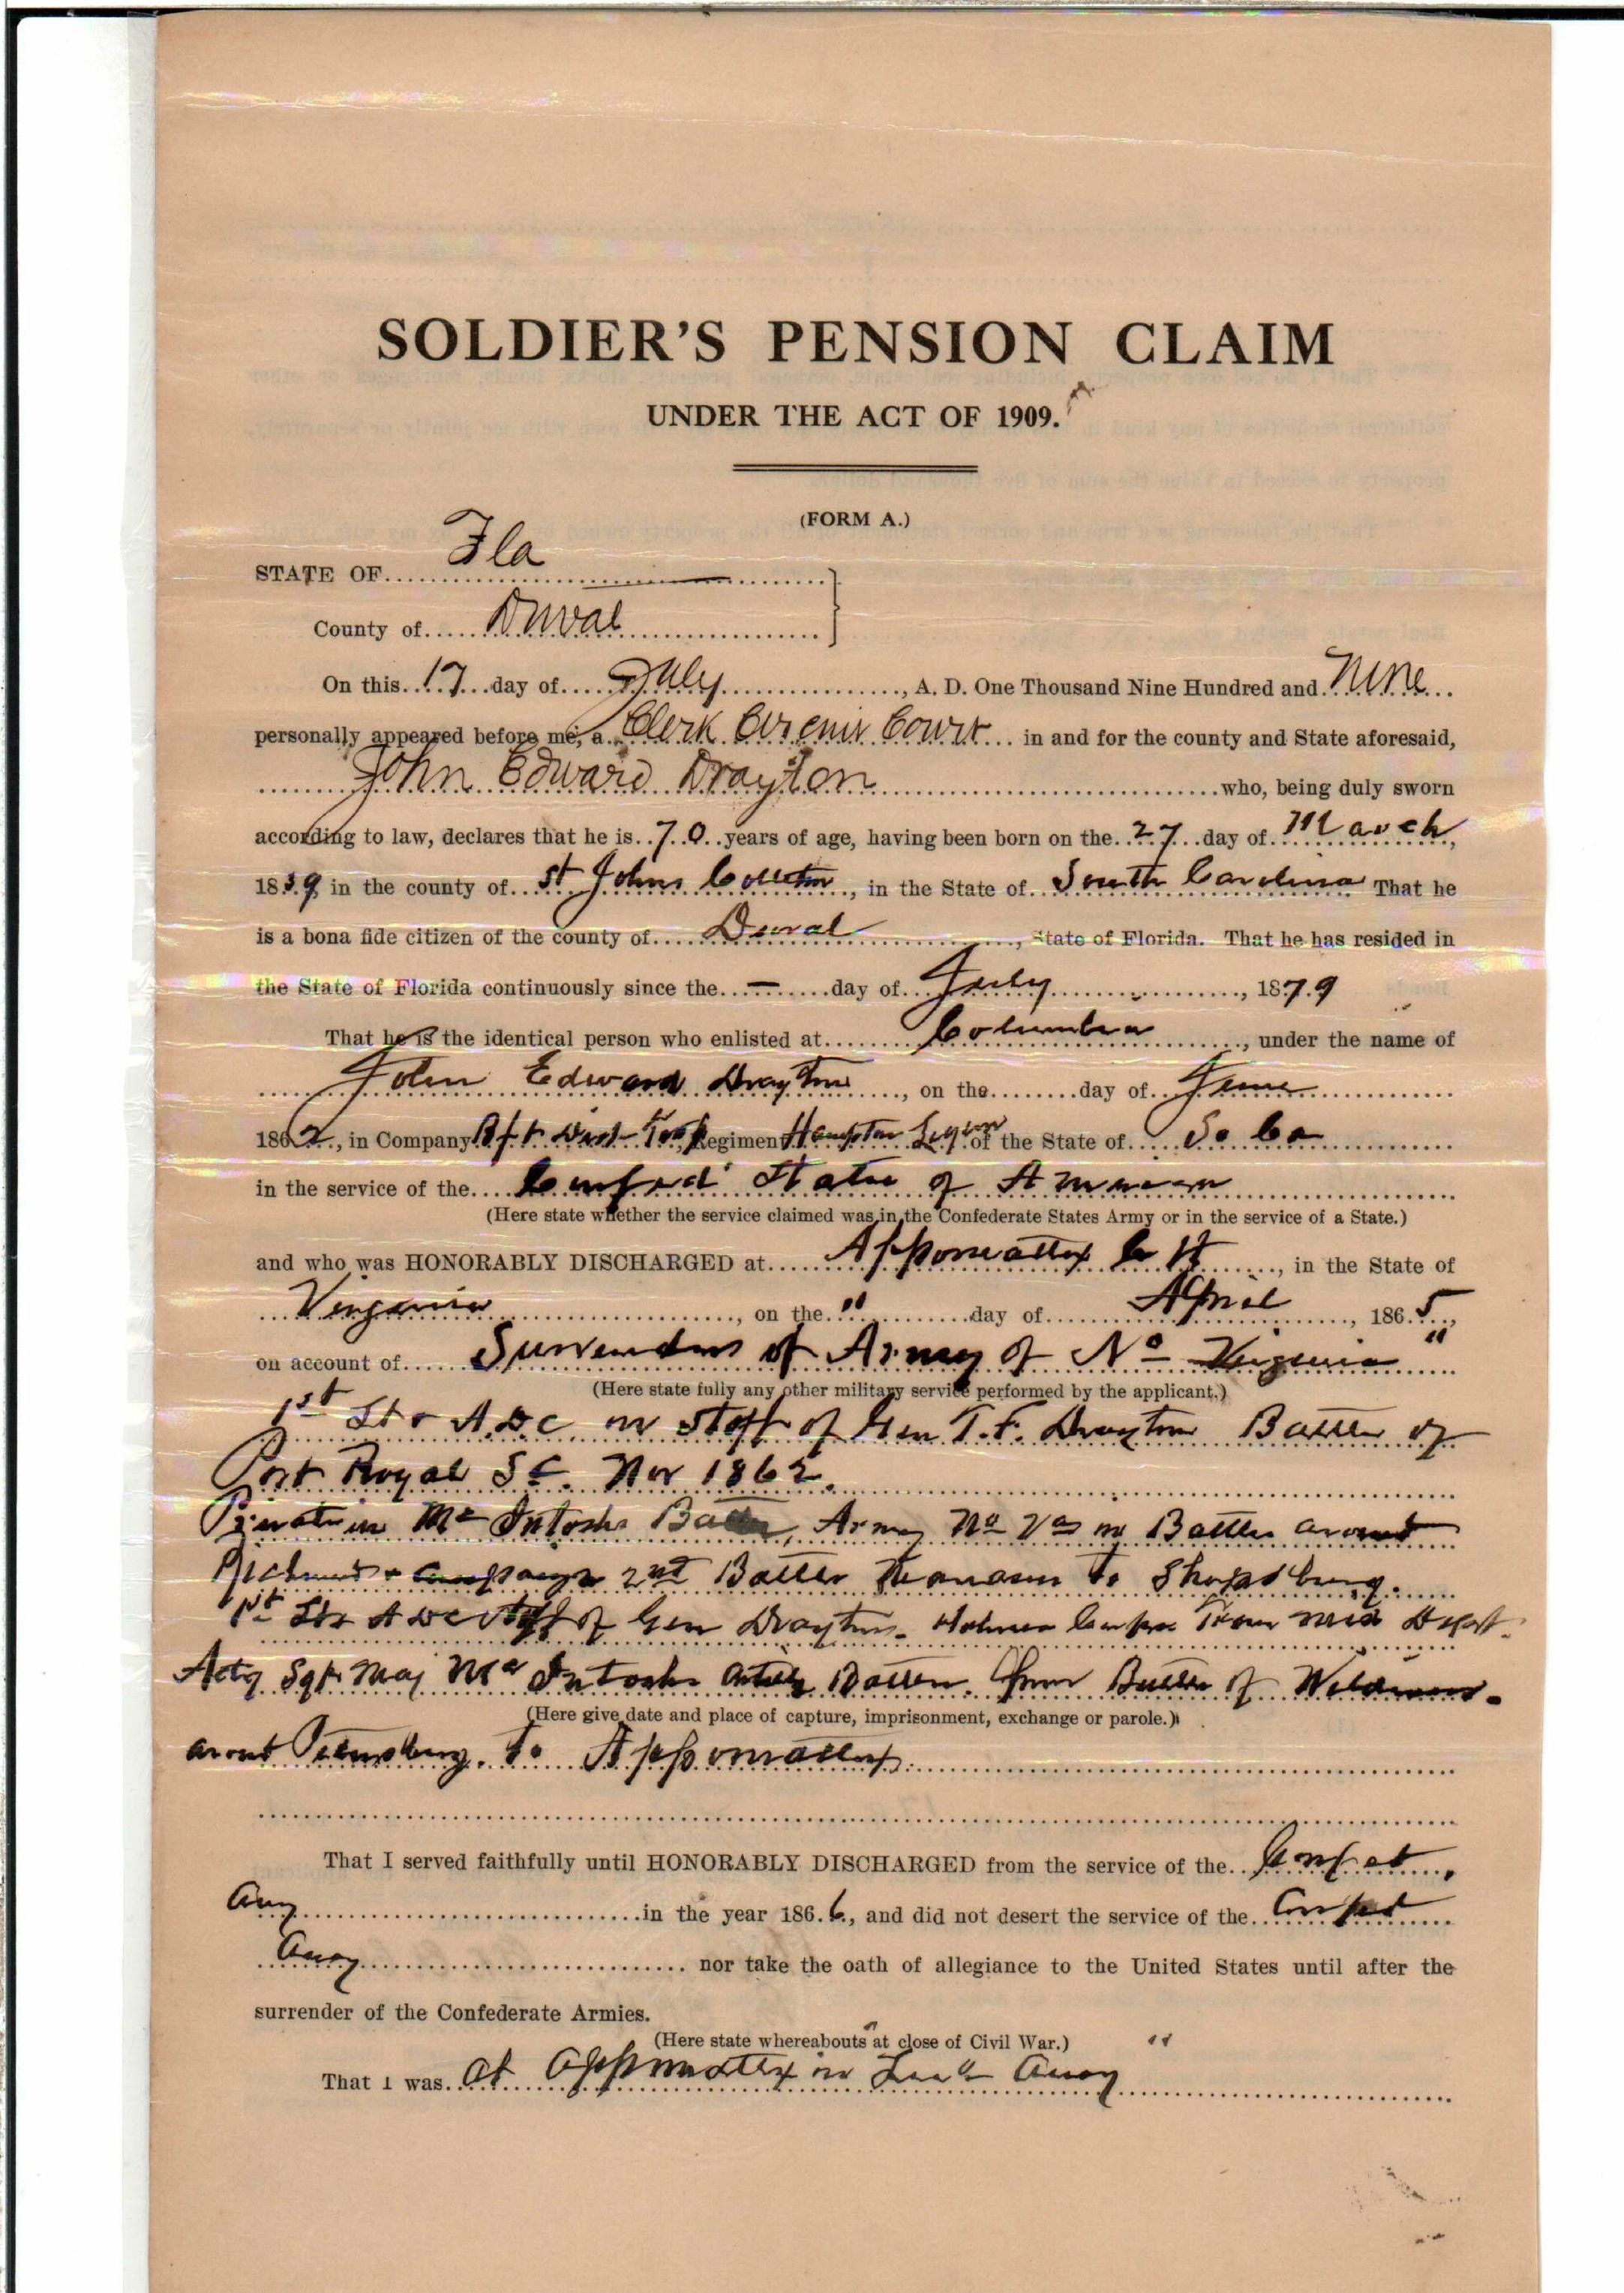 SOLDIER'S PENSION CLAIM
UNDER THE ACT OF 1909.
(FORM A.)
STATE OF Fla
County of Duval
On this 17 day of July, A. D. One Thousand Nine Hundred and Nine
personally appeared before me, a Clerk Circuit Court in and for the county and State aforesaid,
John Edward Drayton who, being duly sworn
according to law, declares that he is 70 years of age, having been born on the 27 day of March,
1839, in the county of St Johns Colleton, in the State of South Carolina That he
is a bona fide citizen of the county of Duval, State of Florida. That he has resided in
the State of Florida continuously since the — day of July, 1879
That he is the identical person who enlisted at Columbia, under the name of
John Edward Drayton, on the day of June
1862, in Company Regiment Hampton Legion of the State of So Ca
in the service of the Confed States of America
(Here state whether the service claimed was in the Confederate States Army or in the service of a State.)
and who was HONORABLY DISCHARGED at Appomattox C H, in the State of
Virginia, on the " day of April, 1865,
on account of Surrender of Army of No Virginia "
(Here state fully any other military service performed by the applicant.)
1st Lt & A.D.C on Staff of Gen T.F. Drayton Battle of
Port Royal SC. Nov 1862.
Private in McIntoshs Army No Va in Battles around
Richmond & 2nd Battle Manassas to Sharpsburg.
1st Lt & ADC Staff of Gen Drayton. Holmes Corps Trans Miss Dept.
Actg Sgt Maj McIntoshs Artily Batten. from Battle of Wilderness.
(Here give date and place of capture, imprisonment, exchange or parole.)
around Petersburg. to Appomattox.
That I served faithfully until HONORABLY DISCHARGED from the service of the Confed
Army in the year 186 , and did not desert the service of the Confed
Army nor take the oath of allegiance to the United States until after the
surrender of the Confederate Armies.
(Here state whereabouts at close of Civil War.) "
That I was at Appomattox in Lee's Army